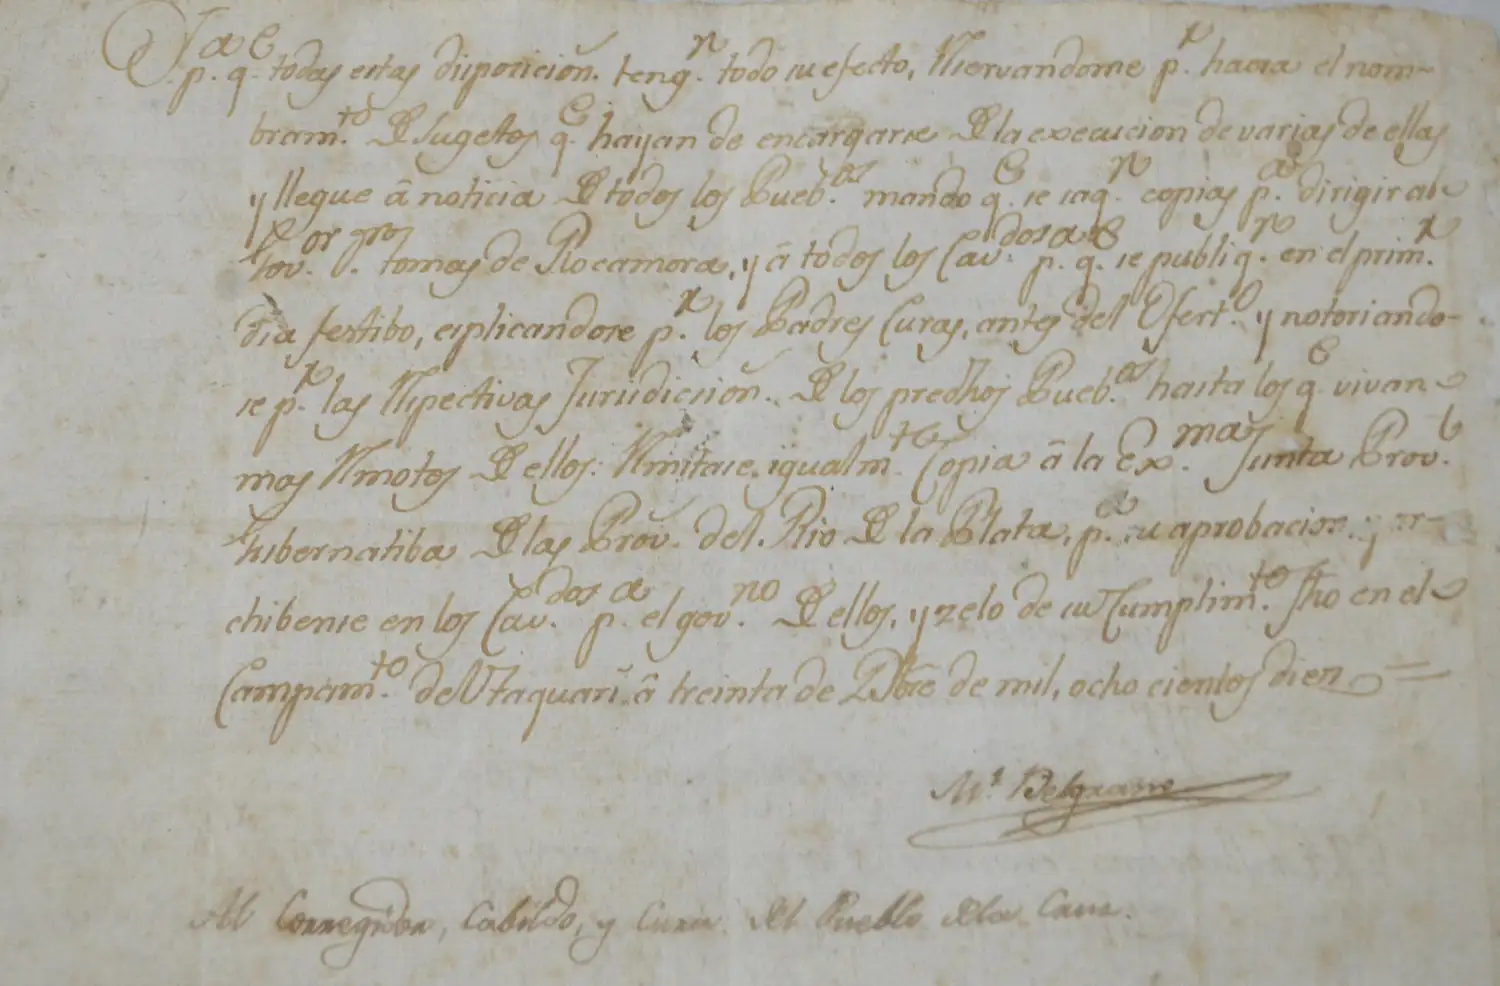 Y p.a q.e todas estas disposicion.s teng.n todo su efecto, Reservandome p.r haora el nom-
bram.to De Sugetos q.e hayan de encargarse De la execucion de varias de ellas
y llegue á noticia De todos los Pueb.os mando q.e se saq.n copias p.a dirigir al
Gov.or S. tomas de Rocamora, y á todos los Cav.dos p.a q.e se publiq.n en el prim.r
dia festibo, esplicandose p.r los Padres Curas, antes del Ofert.o y notoriando-
se p.r las Respectivas Jurisdiccion.s De los predhos Pueb.os hasta los q.e vivan
mas Remotos De ellos: Remitase igualm.te Copia á la Ex.ma Junta Prov.l
Gubernatiba De las Prov.s del Rio De la Plata, p.a su aprobacion y ar-
chibense en los Cav.dos p.a el gov.no De ellos, y zelo de su Cumplim.to Fho en el
Campam.to del Taquarí á treinta de Dbre de mil, ocho cientos diez =
M.l Belgrano
Al Corregidor, Cabildo, y Cura del Pueblo de la Cruz.